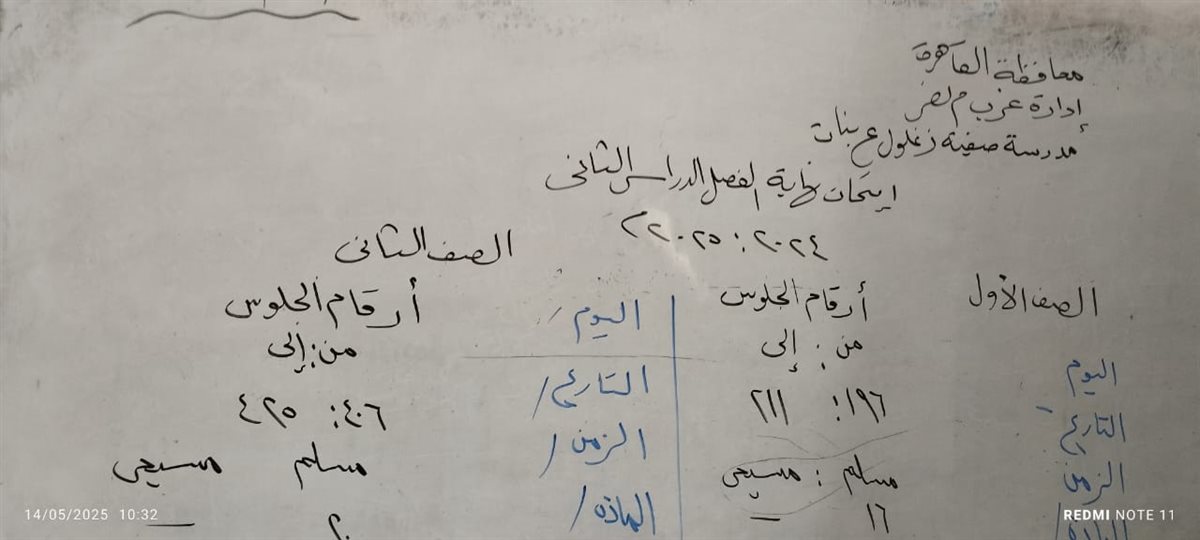 محافظة القاهرة
إدارة غرب م نصر
مدرسة صفية زغلول ع بنات
إمتحان نهاية الفصل الدراسى الثانى
٢٠٢٤ : ٢٠٢٥ م
الصف الأول
أرقام الجلوس
من : إلى
١٩٦ : ٢١١
مسلم : مسيحى
١٦ —
اليوم
التاريخ
الزمن
المادة /
الصف الثانى
أرقام الجلوس
من : إلى
٤٠٦ : ٤٢٥
مسلم مسيحى
٢٠ —
اليوم /
التاريخ /
الزمن /
الماده /
14/05/2025 10:32
REDMI NOTE 11